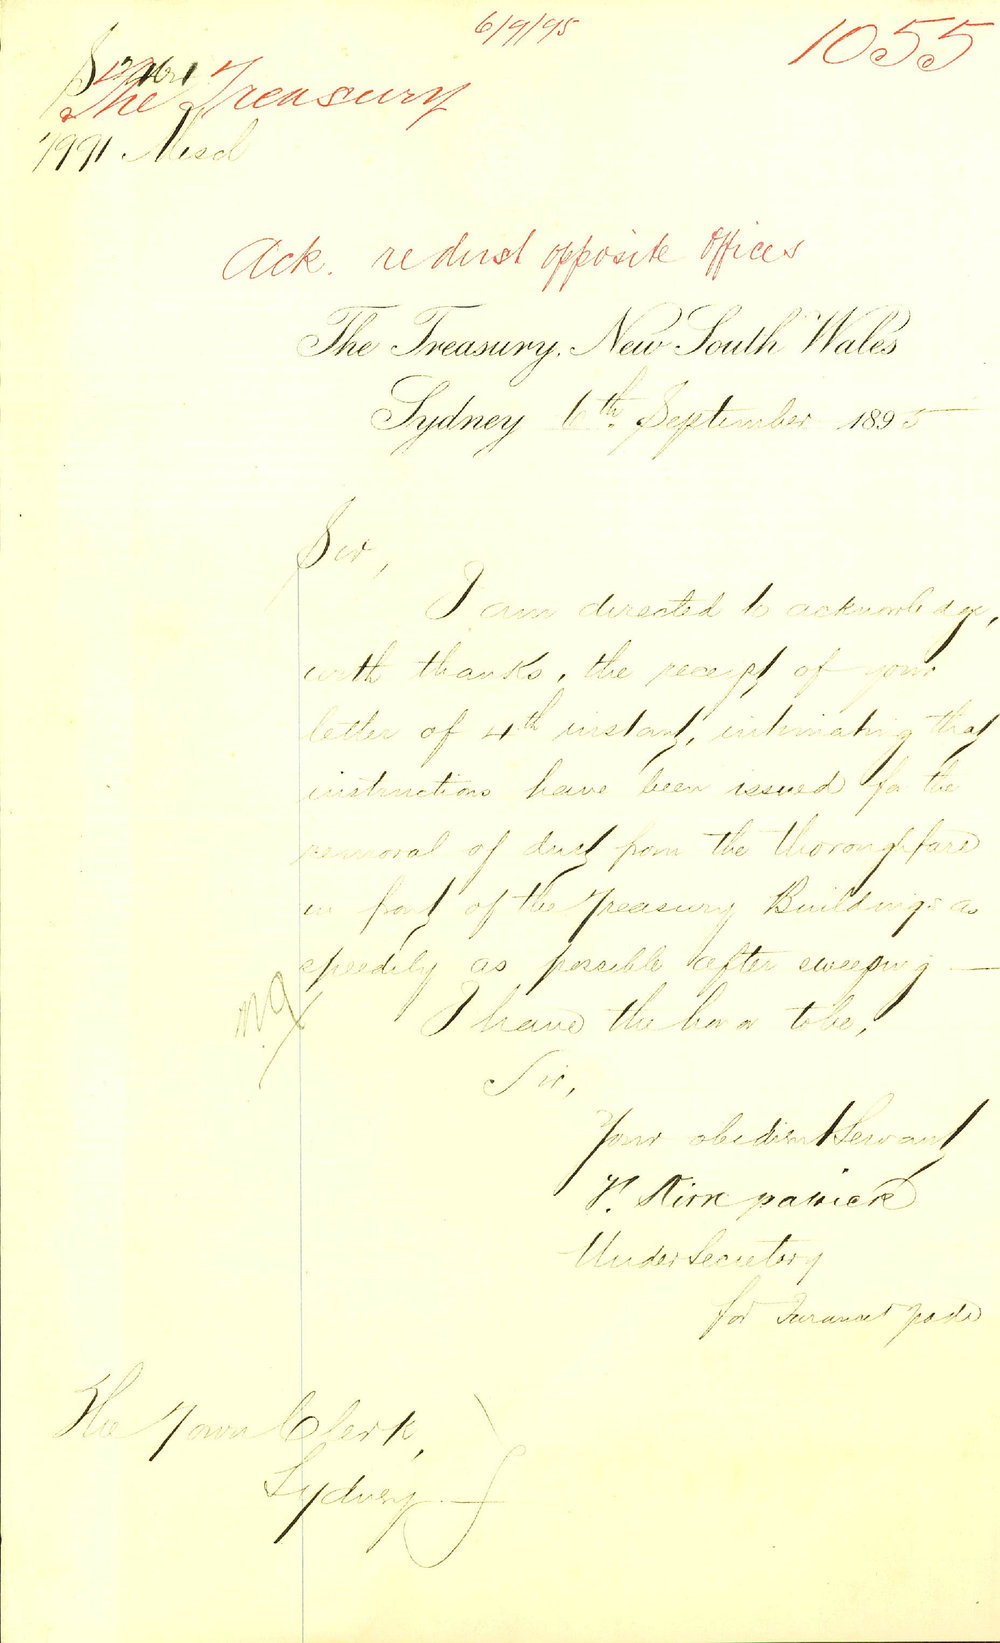 6/9/95
1055
The Treasury
7991 Misd
Ack. re dust opposite offices
The Treasury, New South Wales
Sydney 6th September 1895
Sir,
I am directed to acknowledge,
with thanks, the receipt of your
letter of 4th instant, intimating that
instructions have been issued for the
removal of dust from the thoroughfare
in front of the Treasury Buildings as
speedily as possible after sweeping —
I have the honor to be,
Sir,
Your obedient Servant
F. Kirkpatrick
Under Secretary
for
The Town Clerk,
Sydney.